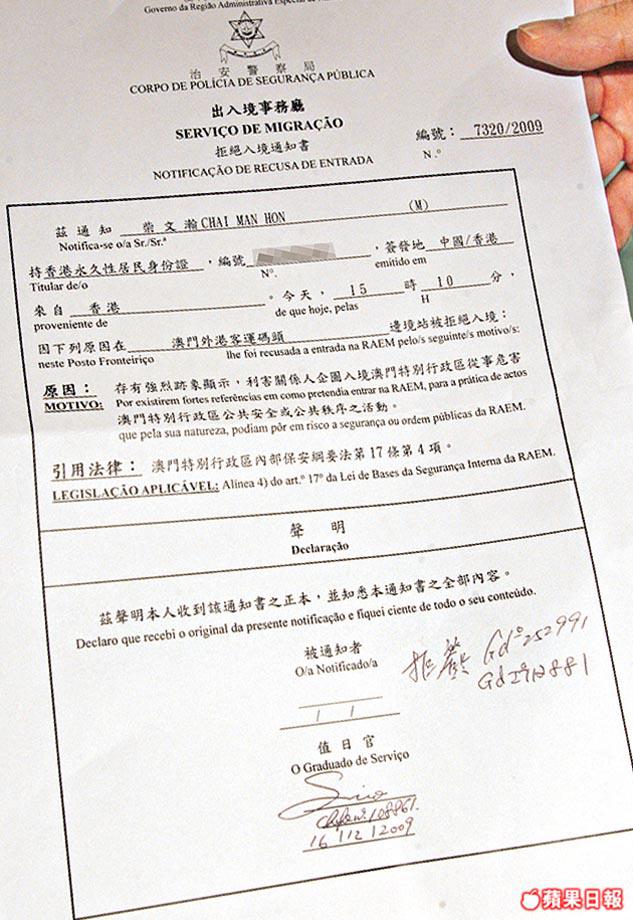 Governo da Região Administrativa Especial de
治安警察局
CORPO DE POLÍCIA DE SEGURANÇA PÚBLICA
出入境事務廳
SERVIÇO DE MIGRAÇÃO
拒絕入境通知書
NOTIFICAÇÃO DE RECUSA DE ENTRADA
編號： 7320/2009
N.º
茲通知 柴文瀚 CHAI MAN HON (M)
Notifica-se o/a Sr./Sr.ª
持香港永久性居民身份證，編號 ，簽發地 中國/香港
Titular de/o Nº. emitido em
來自 香港 。今天， 15 時 10 分，
proveniente de de que hoje, pelas H
因下列原因在 澳門外港客運碼頭 邊境站被拒絕入境：
neste Posto Fronteiriço lhe foi recusada a entrada na RAEM pelo/s seguinte/s motivo/s:
原因： 存有強烈跡象顯示，利害關係人企圖入境澳門特別行政區從事危害
MOTIVO: Por existirem fortes referências em como pretendia entrar na RAEM, para a prática de actos
澳門特別行政區公共安全或公共秩序之活動。
que pela sua natureza, podiam pôr em risco a segurança ou ordem públicas da RAEM.
引用法律： 澳門特別行政區內部保安綱要法第17條第4項。
LEGISLAÇÃO APLICÁVEL: Alínea 4) do art.º 17º da Lei de Bases da Segurança Interna da RAEM.
聲明
Declaração
茲聲明本人收到該通知書之正本，並知悉本通知書之全部內容。
Declaro que recebi o original da presente notificação e fiquei ciente de todo o seu conteúdo.
被通知者
O/a Notificado/a
拒簽 Gdº252991
Gdº212881
/ /
值日官
O Graduado de Serviço
108861.
16/12/2009
蘋果日報